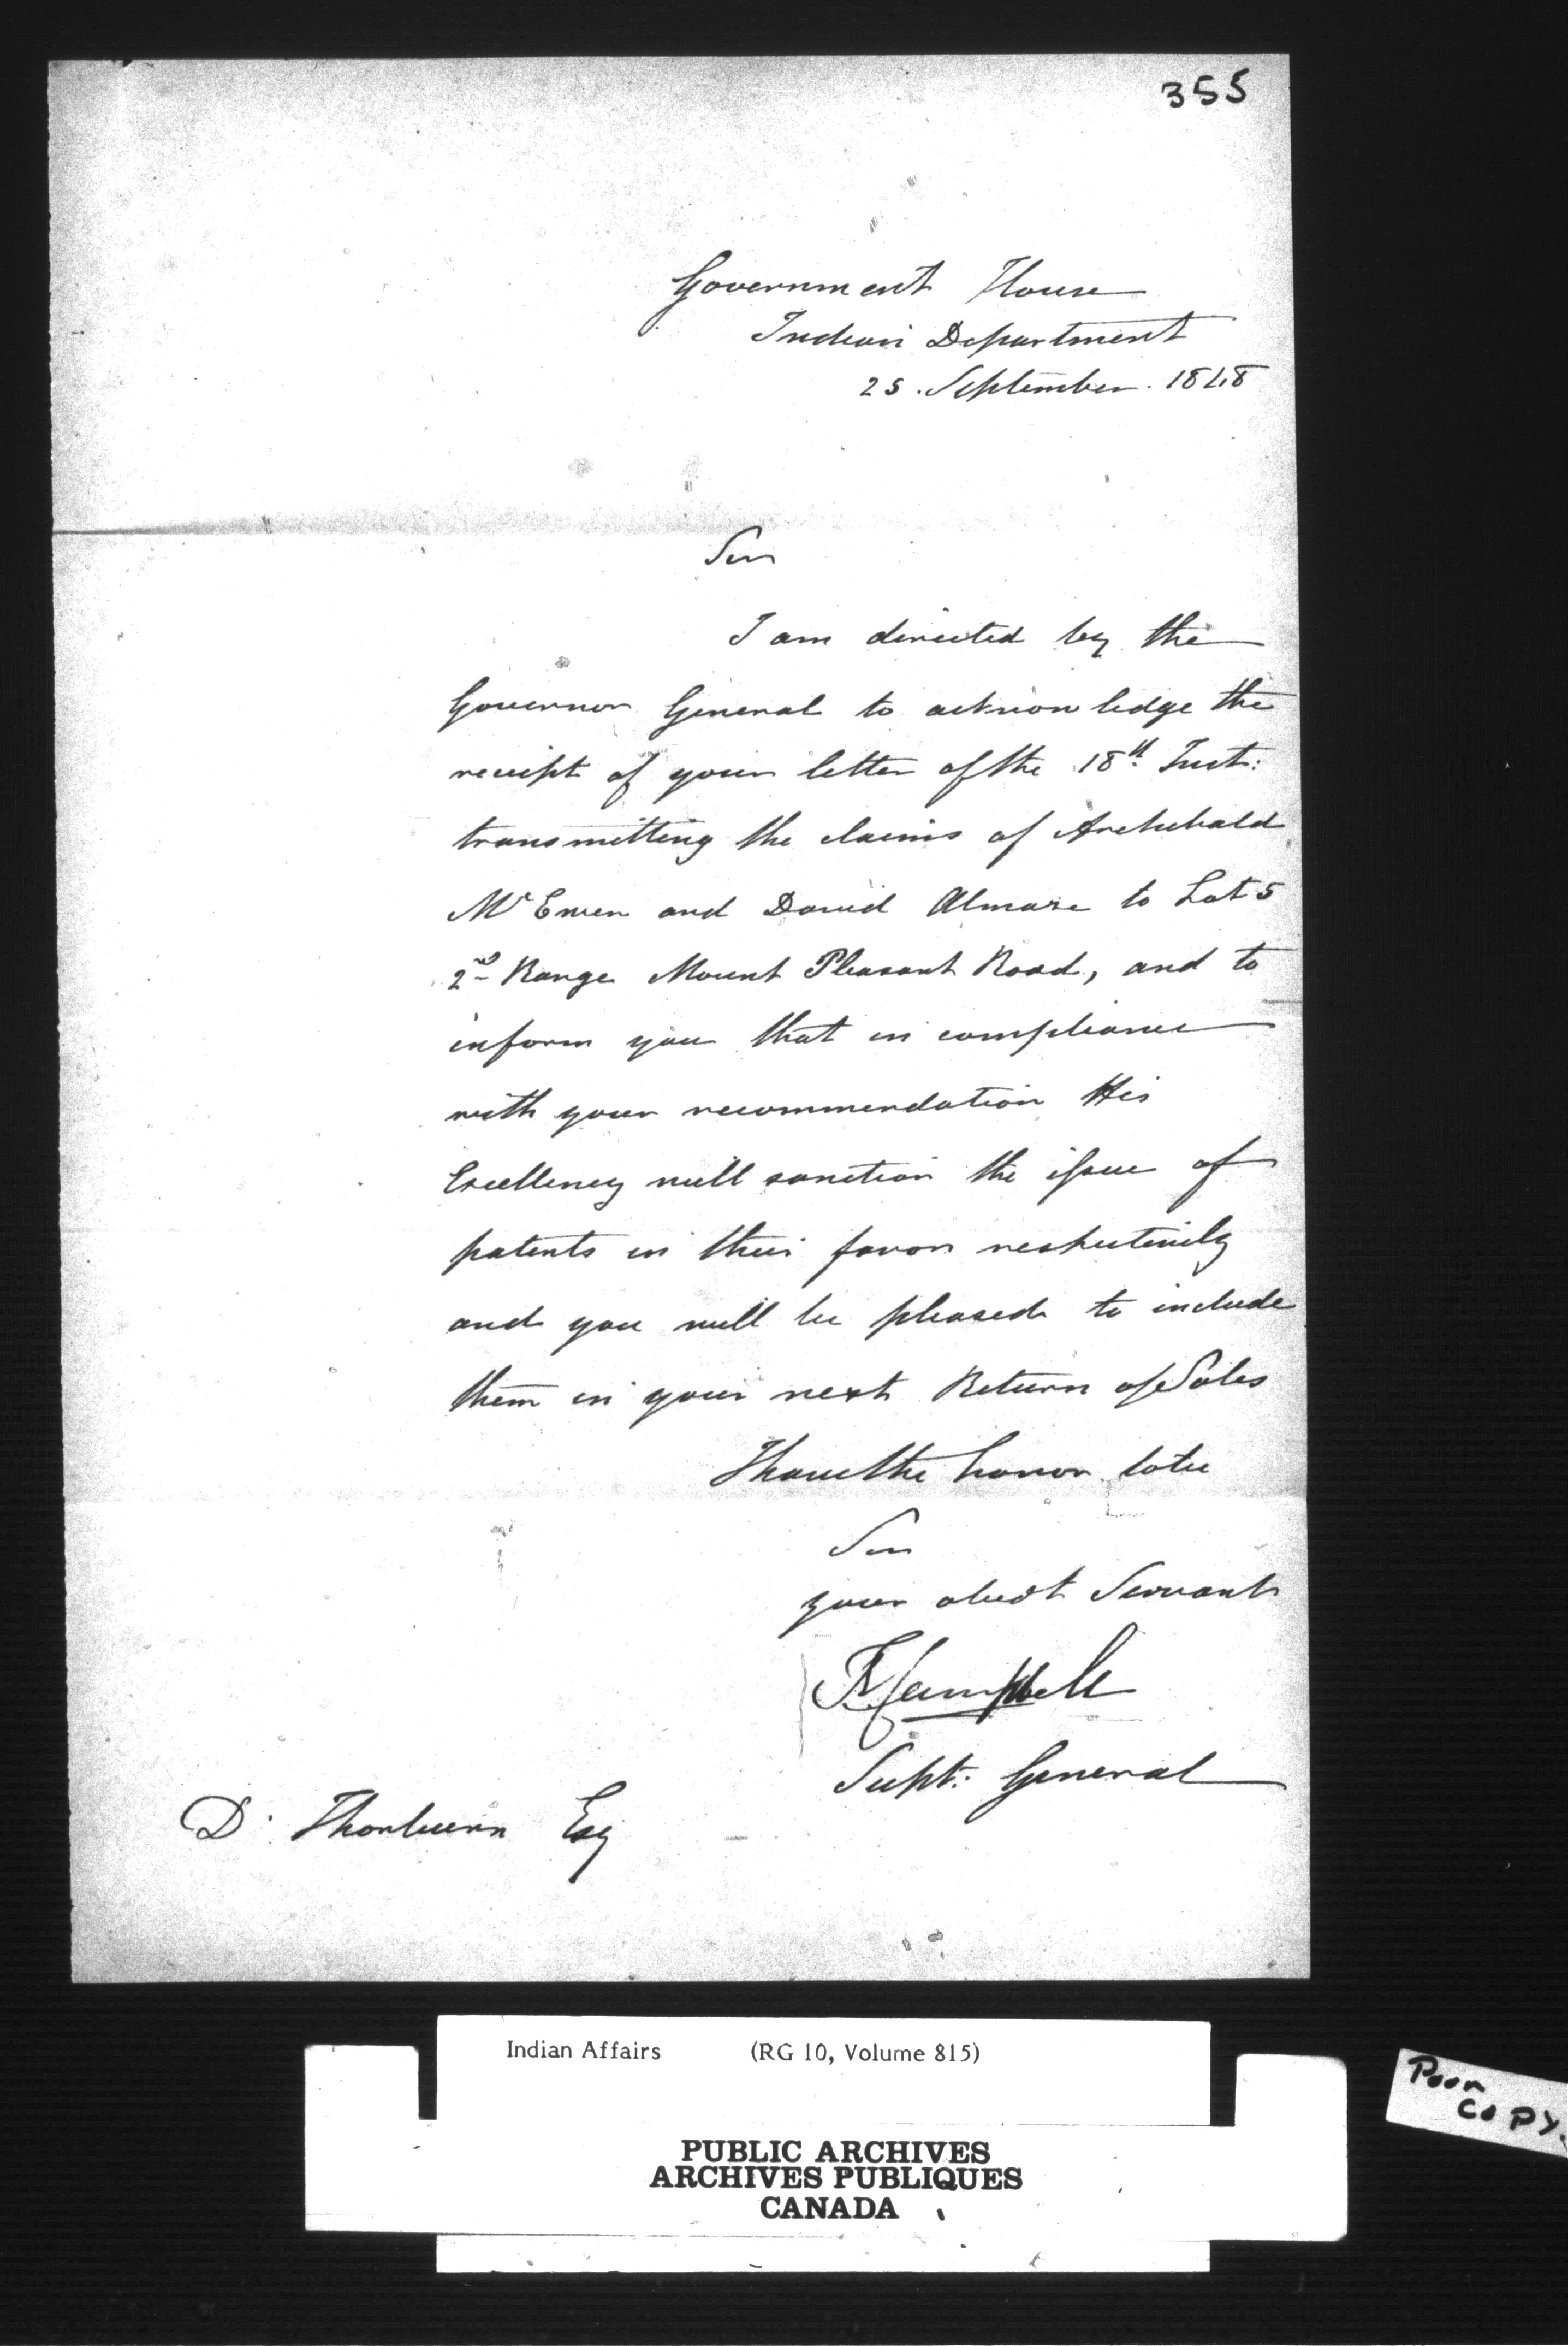 355
Government House
Indian Department
25. September. 1848
Sir
I am directed by the
Governor General to acknowledge the
receipt of your letter of the 18th Inst:
transmitting the claims of Archibald
McEwen and David Almase to Lot 5
2nd Range Mount Pleasant Road, and to
inform you that in compliance
with your recommendation His
Excellency will sanction the issue of
patents in their favor respectively
and you will be pleased to include
them in your next Return of Sales
I have the honor to be
Sir
your obedt Servant
T Campbell
Supt: General
D. Thorburn Esq
Indian Affairs (RG 10, Volume 815)
PUBLIC ARCHIVES
ARCHIVES PUBLIQUES
CANADA
Poor
COPY.